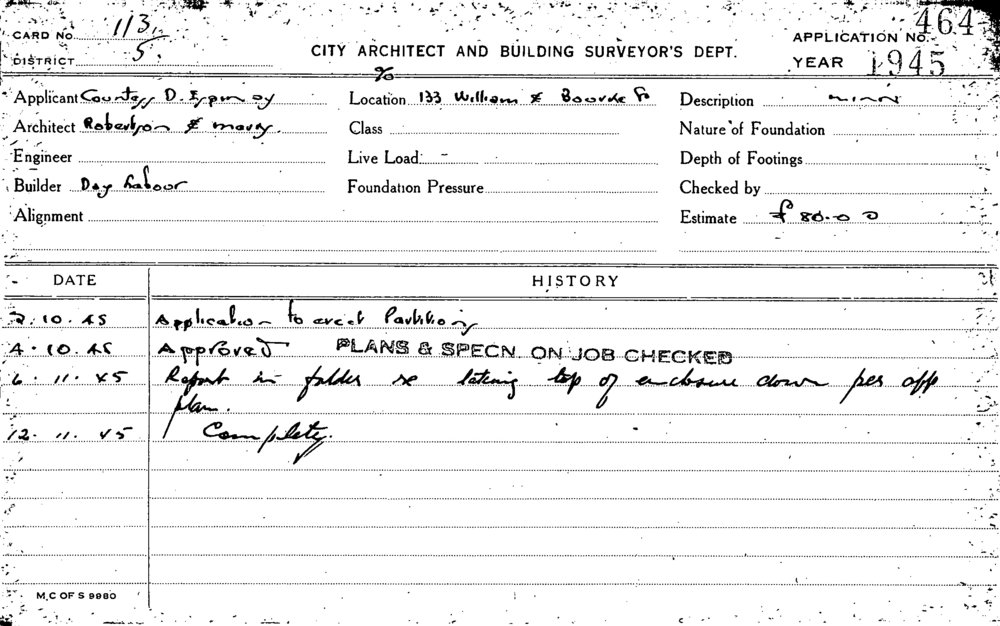 CARD No. 113.
DISTRICT 5.
CITY ARCHITECT AND BUILDING SURVEYOR'S DEPT.
APPLICATION No. 464
YEAR 1945
Applicant Countess D. Epinay
Location 133 William & Bourke St
Description
Architect Robertson & Marks.
Class
Nature of Foundation
Engineer
Live Load: -
Depth of Footings
Builder Day Labour
Foundation Pressure
Checked by
Alignment
Estimate £ 80.0 0
DATE HISTORY
2.10.45 Application to erect Partitions
4.10.45 Approved PLANS & SPECN. ON JOB CHECKED
6.11.45 Report in folder re top of enclosure down per app
plan.
12.11.45 Complete.
M.C OF S 9980